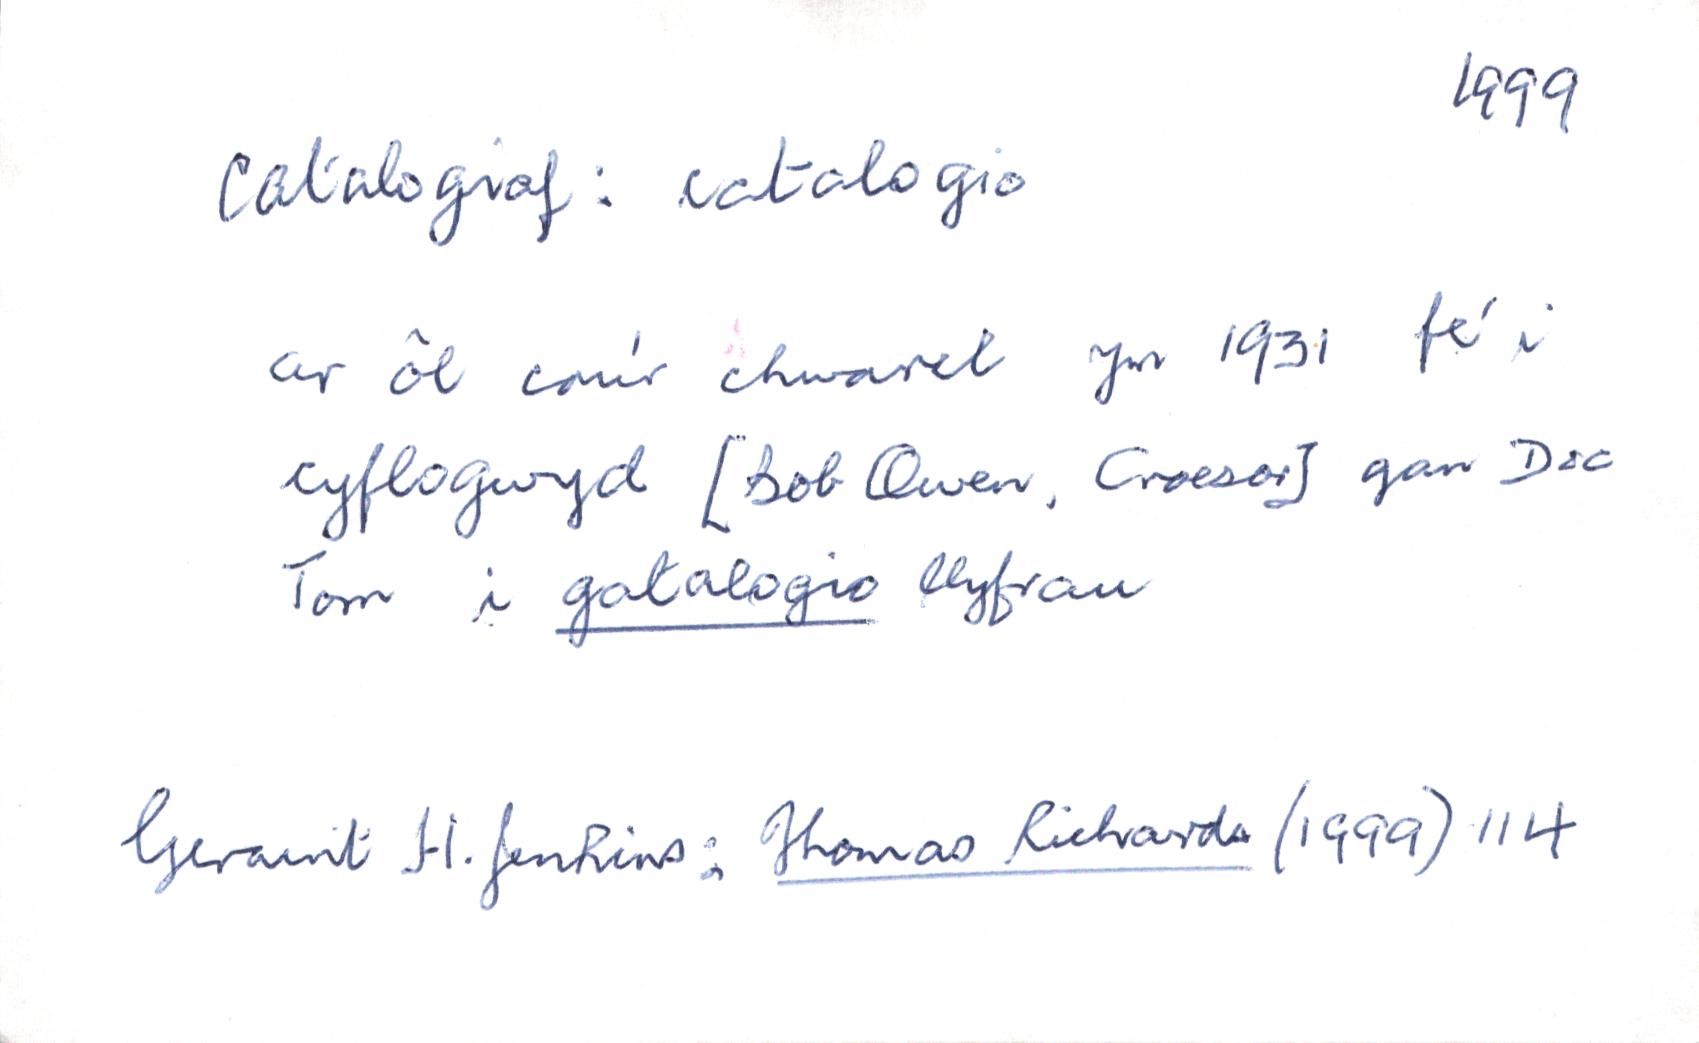 1999
Catalogiaf: catalogio
ar ôl cau'r chwarel ym 1931 fe'i
cyflogwyd [Bob Owen, Croesor] gan Doc
Tom i gatalogio llyfrau
Geraint H. Jenkins: Thomas Richards (1999) 114